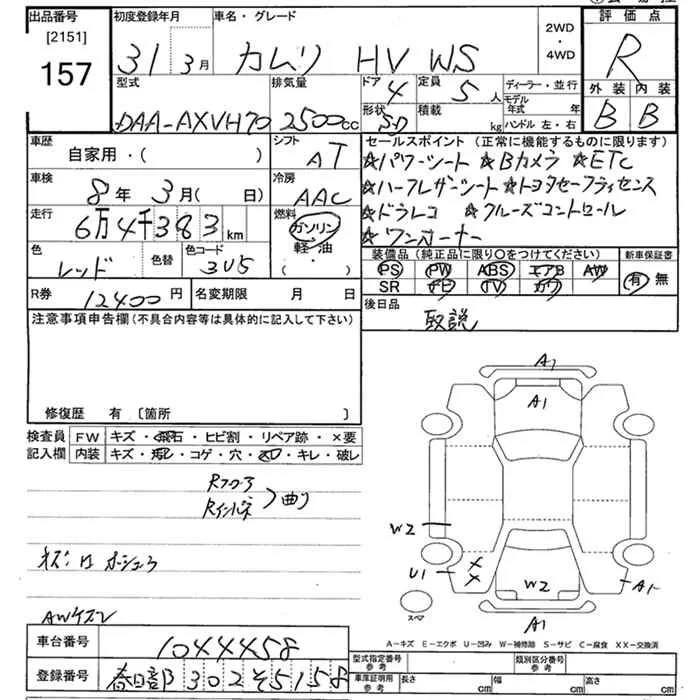 出品番号
[2151]
157
初度登録年月
31 3月
車名・グレード
カムリ HV WS
2WD
・
4WD
評価点
R
外装 内装
B B
型式
DAA-AXVH70
排気量
2500cc
ドア
4
定員
5 人
形状
SD
積載
kg
ディーラー・並行
モデル年式 年
ハンドル 左・右
車歴
自家用・( )
シフト
AT
車検
8年 3月( 日)
冷房
AAC
走行
6万4千383km
燃料
ガソリン
軽・油
・
( )
色
レッド
色替
色コード
3U5
R券
12400円
名変期限 月 日
セールスポイント (正常に機能するものに限ります)
☆パワーシート ☆Bカメラ ☆ETC
☆ハーフレザーシート ☆トヨタセーフティセンス
☆ドラレコ ☆クルーズコントロール
☆ワンオーナー
装備品(純正品に限り○をつけてください)
新車保証書
PS PW ABS エアB AW
SR ナビ TV カワ
有 無
後日品
取説
注意事項申告欄(不具合内容等は具体的に記入して下さい)
修復歴 有 [箇所 ]
検査員
記入欄
FW キズ・飛石・ヒビ割・リペア跡・×要
内装 キズ・汚れ・コゲ・穴・スレ・キレ・破レ
Rフロア
Rインパネ
曲り
AWキズ
A1
A1
W2
U1
××
W2
A1
A1
スペア
A-キズ E-エクボ U-凹み W-補修跡 S-サビ C-腐食 XX-交換済
車台番号
1044458
登録番号
春日部 302 そ 5158
型式指定番号
参考
類別区分番号
参考
車庫証明用
参考
長さ cm
幅 cm
高さ cm